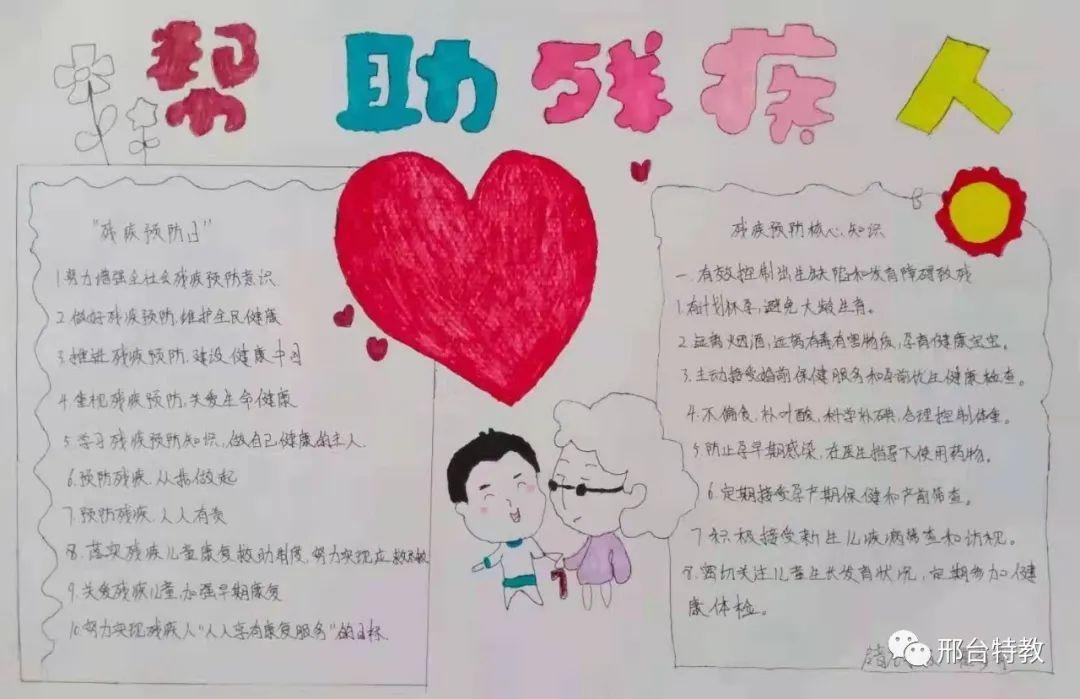 帮助残疾人
"残疾预防日"
1.努力增强全社会残疾预防意识
2.做好残疾预防,维护全民健康
3.推进残疾预防,建设健康中国
4.重视残疾预防,关爱生命健康
5.学习残疾预防知识,做自己健康的主人
6.预防残疾.从我做起
7.预防残疾.人人有责
8.落实残疾儿童康复救助制度,努力实现应救尽救
9.关爱残疾儿童,加强早期康复
10.努力实现残疾人"人人享有康复服务"的目标
残疾预防核心知识
一.有效控制出生缺陷和发育障碍致残
1.有计划怀孕,避免大龄生育。
2.远离烟酒,远离有毒有害物质,孕育健康宝宝。
3.主动接受婚前保健服务和孕前优生健康检查。
4.不偏食,补叶酸,科学补碘,合理控制体重。
5.防止孕早期感染,在医生指导下使用药物。
6.定期接受孕产期保健和产前筛查。
7.积极接受新生儿疾病筛查和访视。
8.密切关注儿童生长发育状况,定期参加健
康体检。
邢台特教